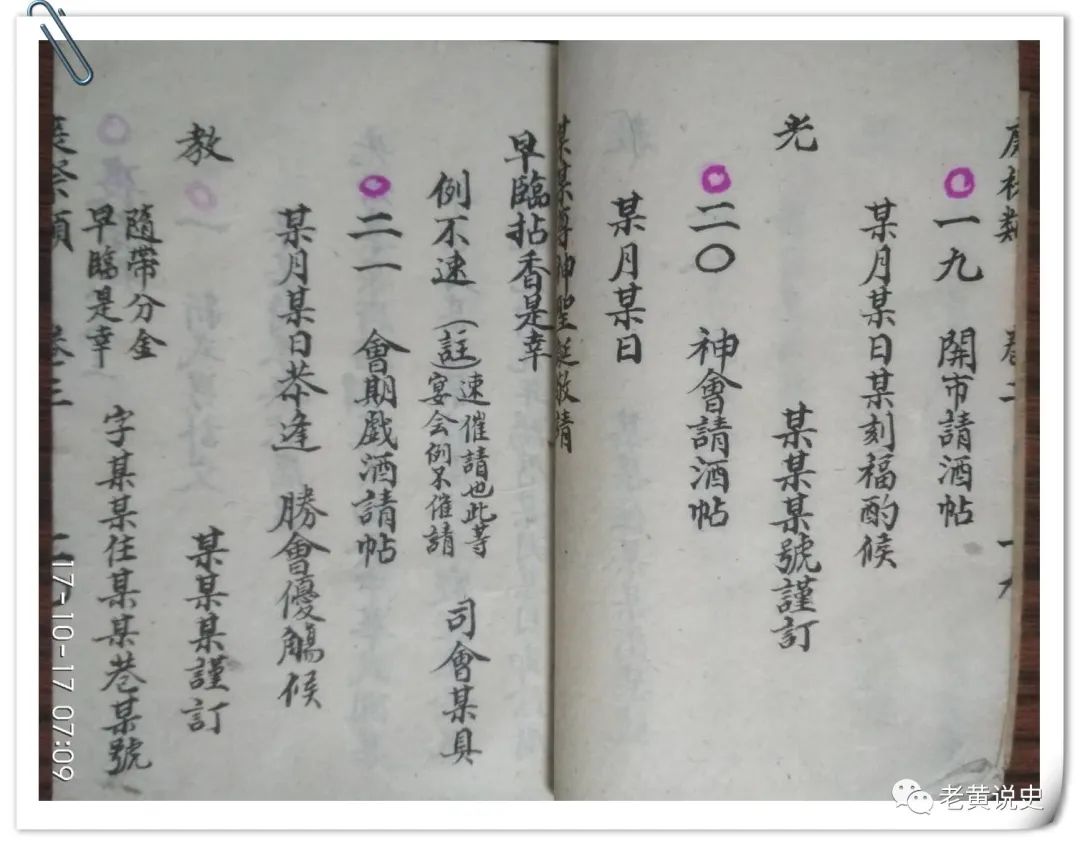 一九　開市請酒帖
某月某日某刻福酌候
光　某某某號謹訂
二〇　神會請酒帖
某月某日
某某尊神聖誕敬請
早臨拈香是幸
例不速（註）速催請也此等宴会例不催請　司會某具
二一　會期戲酒請帖
某月某日恭逢　勝會優觴候
教　某某某謹訂
隨帶分金
早臨是幸　字某某住某某巷某號
卷三
17-10-17 07:09
老黄说史